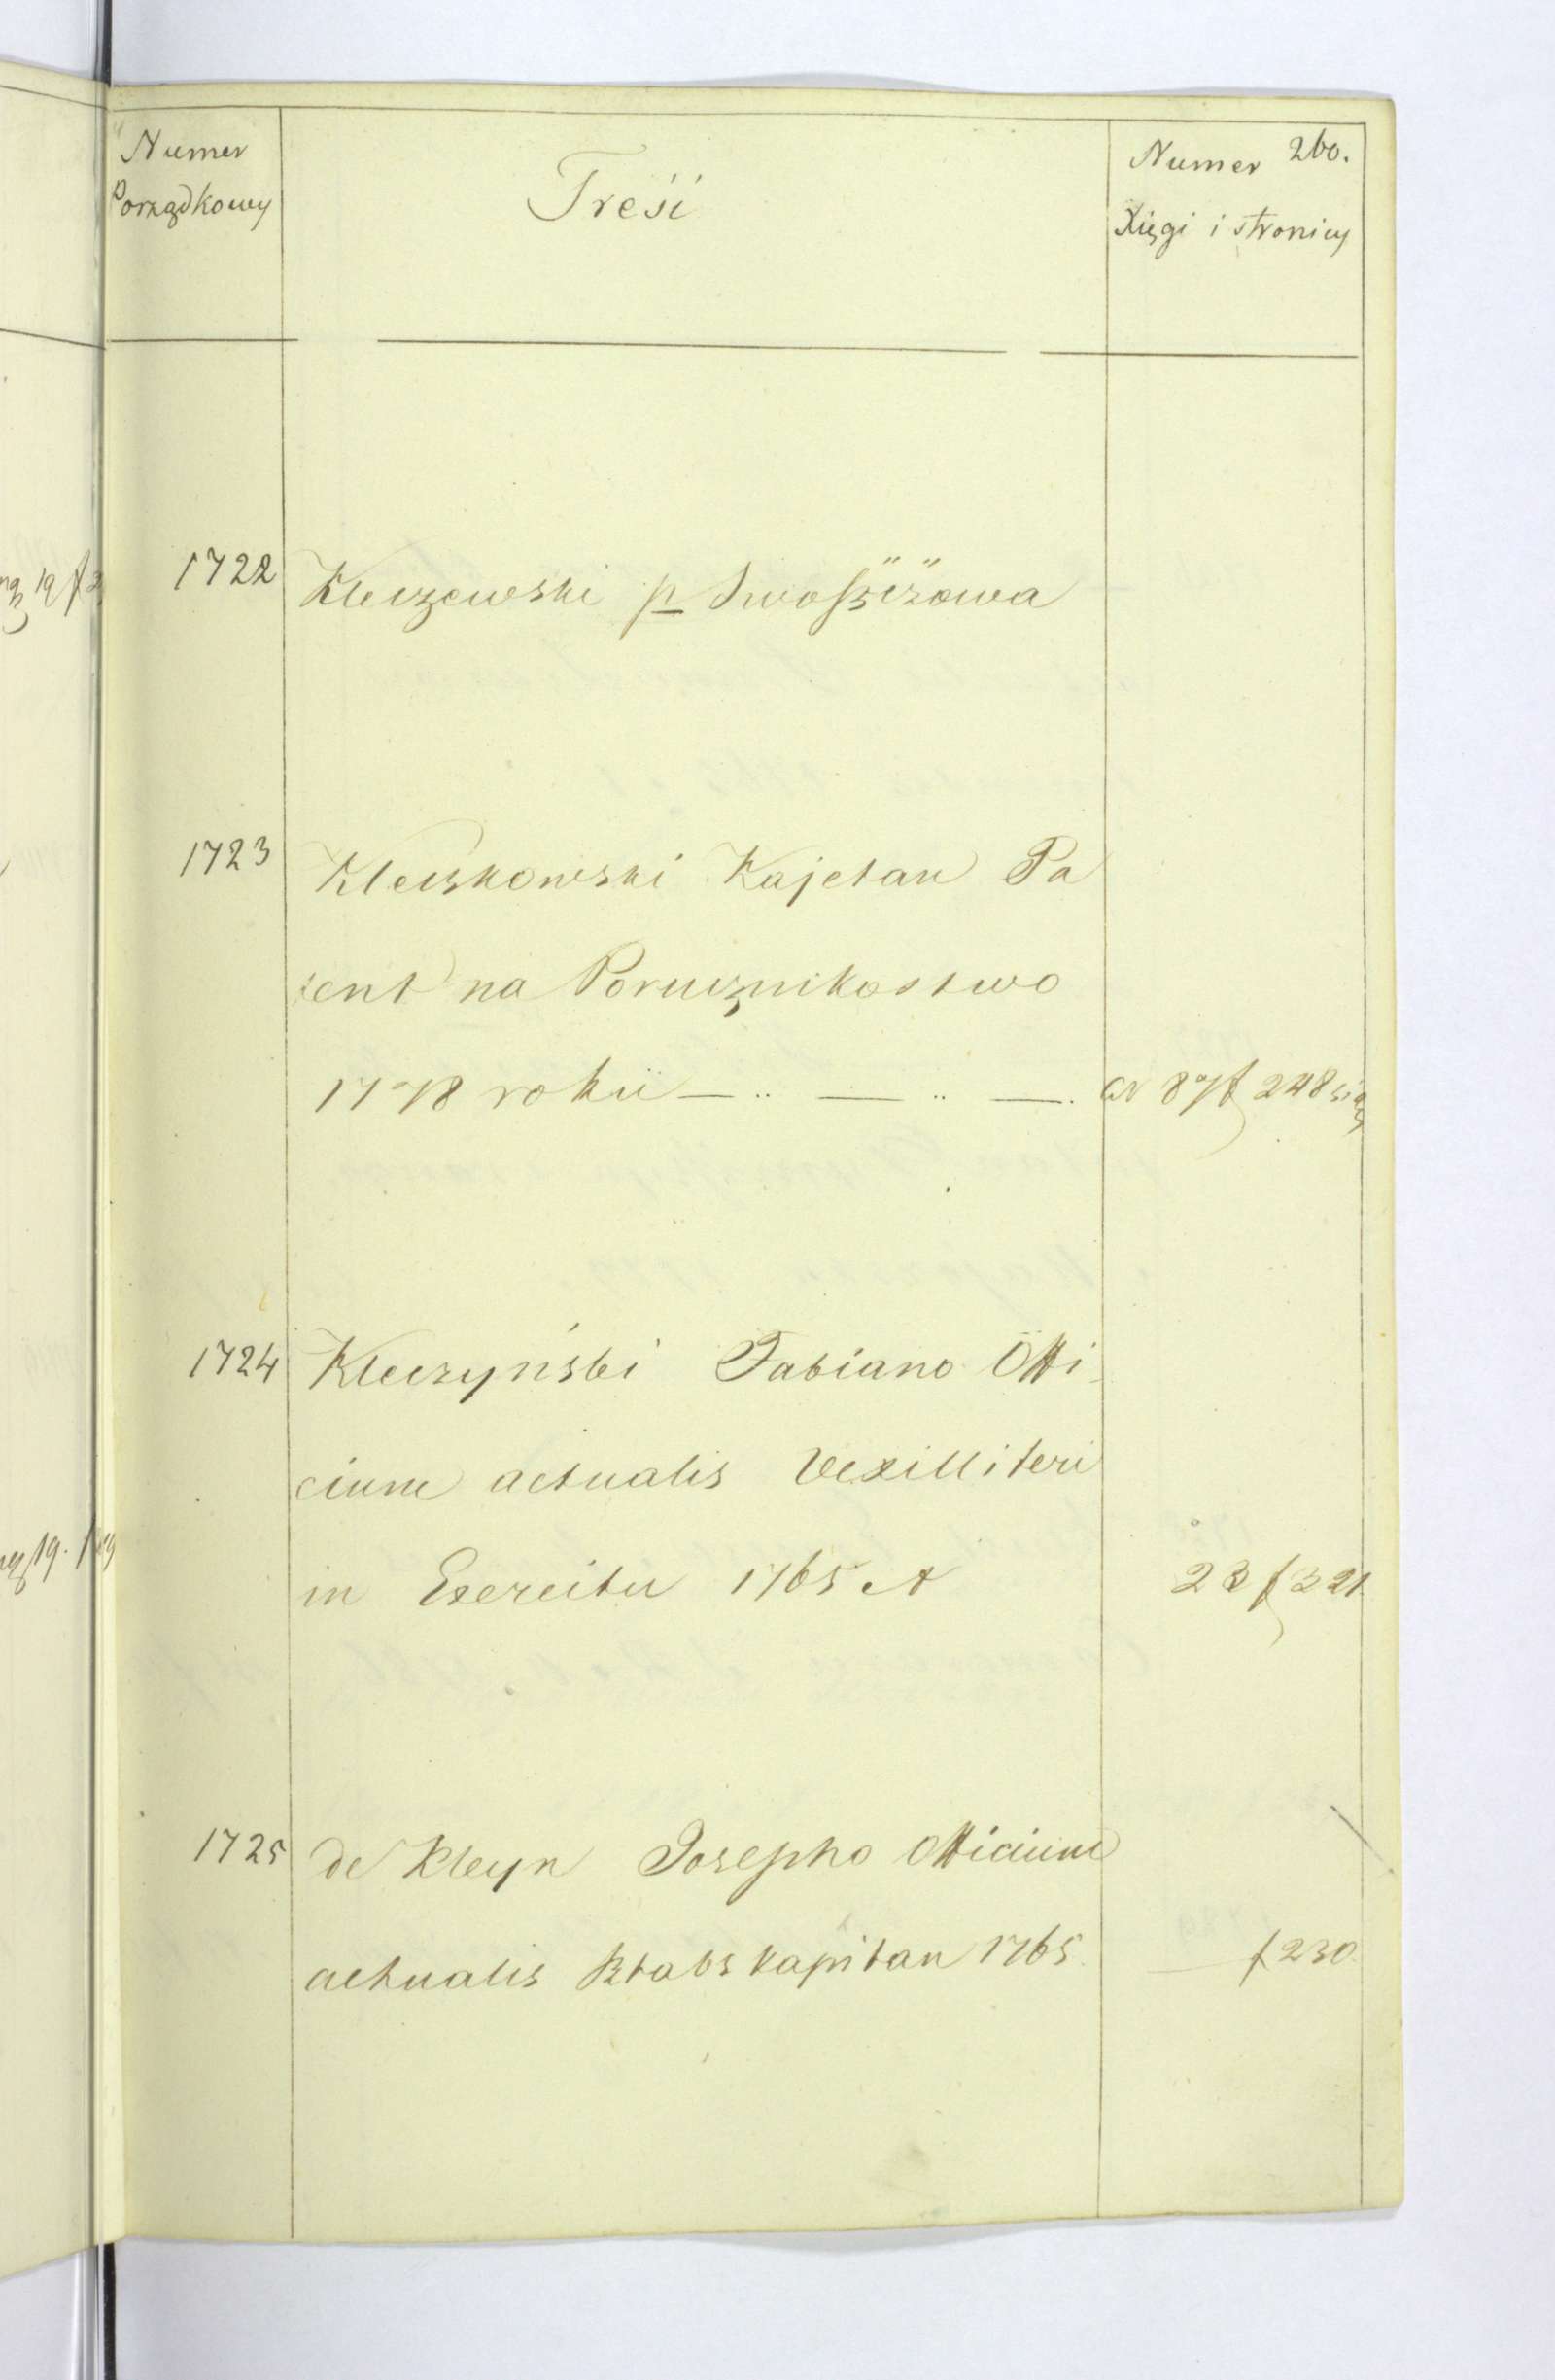 260.
Numer Porządkowy
Treść
Numer Xięgi i stronicy
1722 Kleczewski p
1723 Kleczkowski Kajetan Pa
tent na Porucznikostwo
1778 rokü — .. — .. — . 248
1724 Kleczyński Fabiano Offi-
cium actualis Vexilliferi
in Exercitu 1765 23 f 321
1725 de Kleyn Josepho Officium
actualis Sztabs kapitan 1765. — f 230.